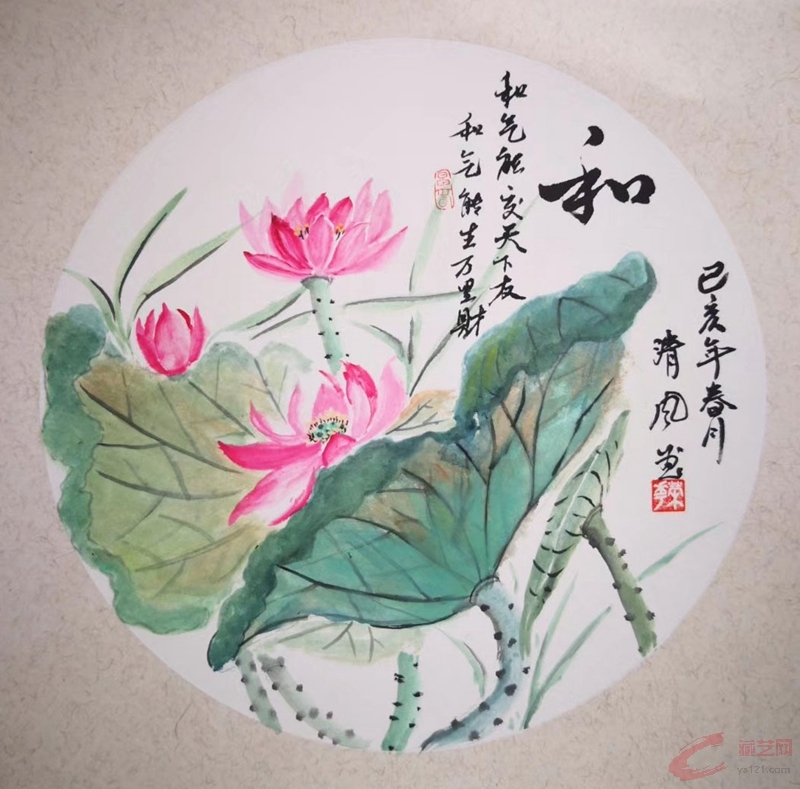 和
和气能交天下友
和气能生万里财
己亥年春月
清风画
yx121.com